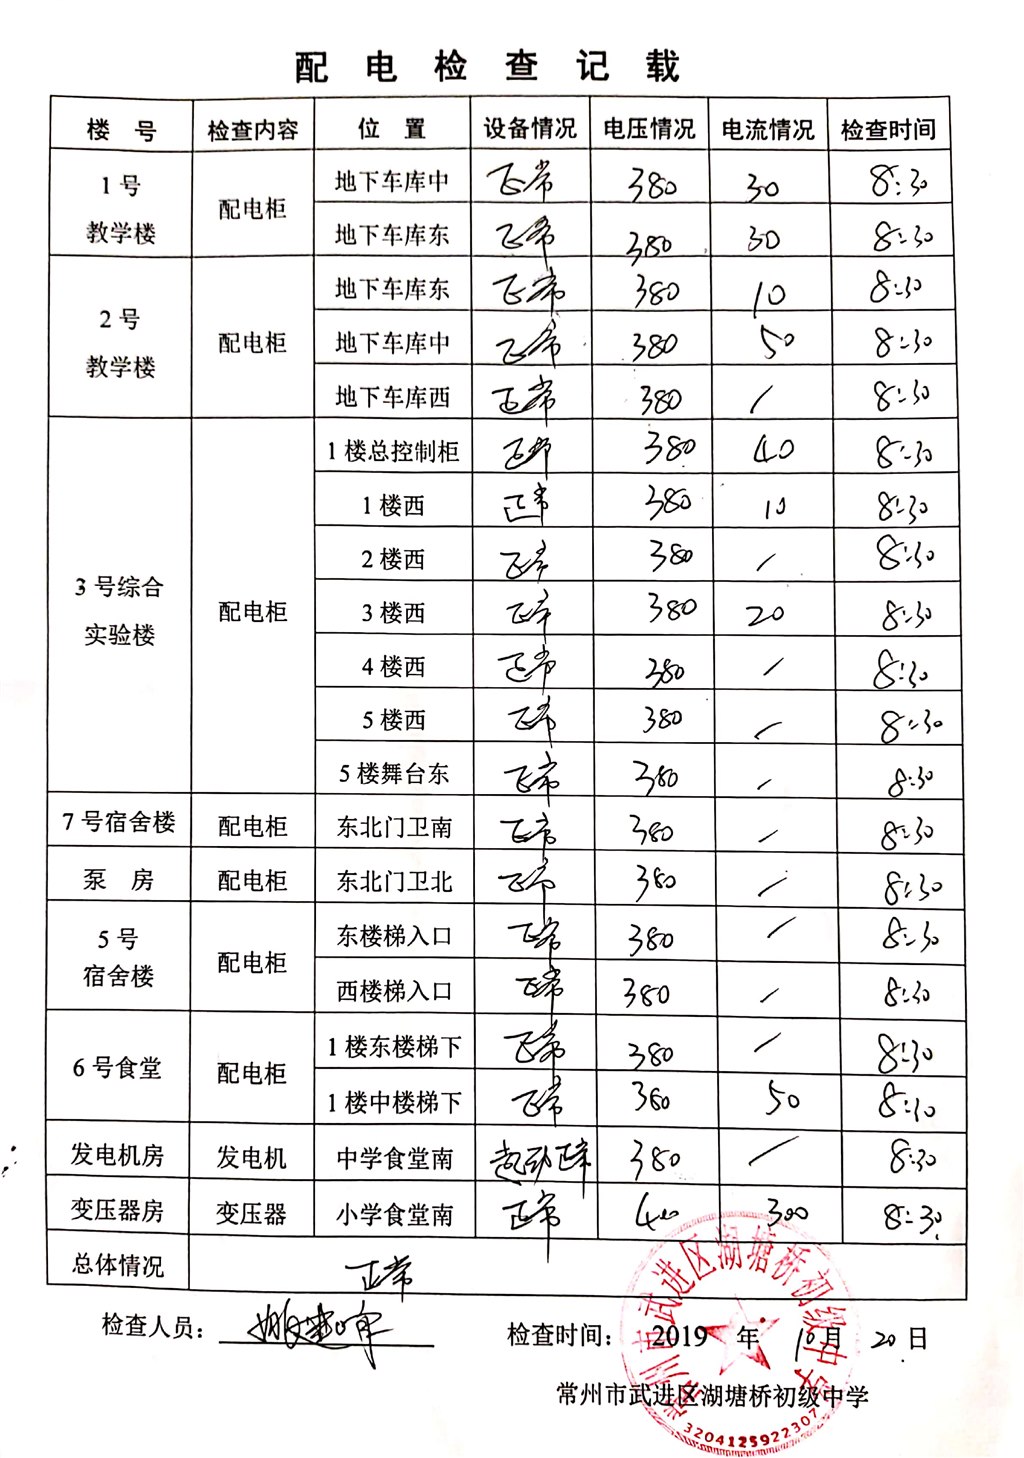 配电检查记载
楼号 检查内容 位置 设备情况 电压情况 电流情况 检查时间
1号教学楼 配电柜 地下车库中 正常 380 30 8:30
地下车库东 正常 380 30 8:30
2号教学楼 配电柜 地下车库东 正常 380 10 8:30
地下车库中 正常 380 50 8:30
地下车库西 正常 380 / 8:30
3号综合实验楼 配电柜 1楼总控制柜 正常 380 40 8:30
1楼西 正常 380 10 8:30
2楼西 正常 380 / 8:30
3楼西 正常 380 20 8:30
4楼西 正常 380 / 8:30
5楼西 正常 380 / 8:30
5楼舞台东 正常 380 / 8:30
7号宿舍楼 配电柜 东北门卫南 正常 380 / 8:30
泵房 配电柜 东北门卫北 正常 380 / 8:30
5号宿舍楼 配电柜 东楼梯入口 正常 380 / 8:30
西楼梯入口 正常 380 / 8:30
6号食堂 配电柜 1楼东楼梯下 正常 380 / 8:30
1楼中楼梯下 正常 380 50 8:30
发电机房 发电机 中学食堂南 起动正常 380 / 8:30
变压器房 变压器 小学食堂南 正常 400 300 8:30
总体情况 正常
检查人员：
检查时间： 2019 年 10月 20日
常州市武进区湖塘桥初级中学
常州市武进区湖塘桥初级中学
3204125922307